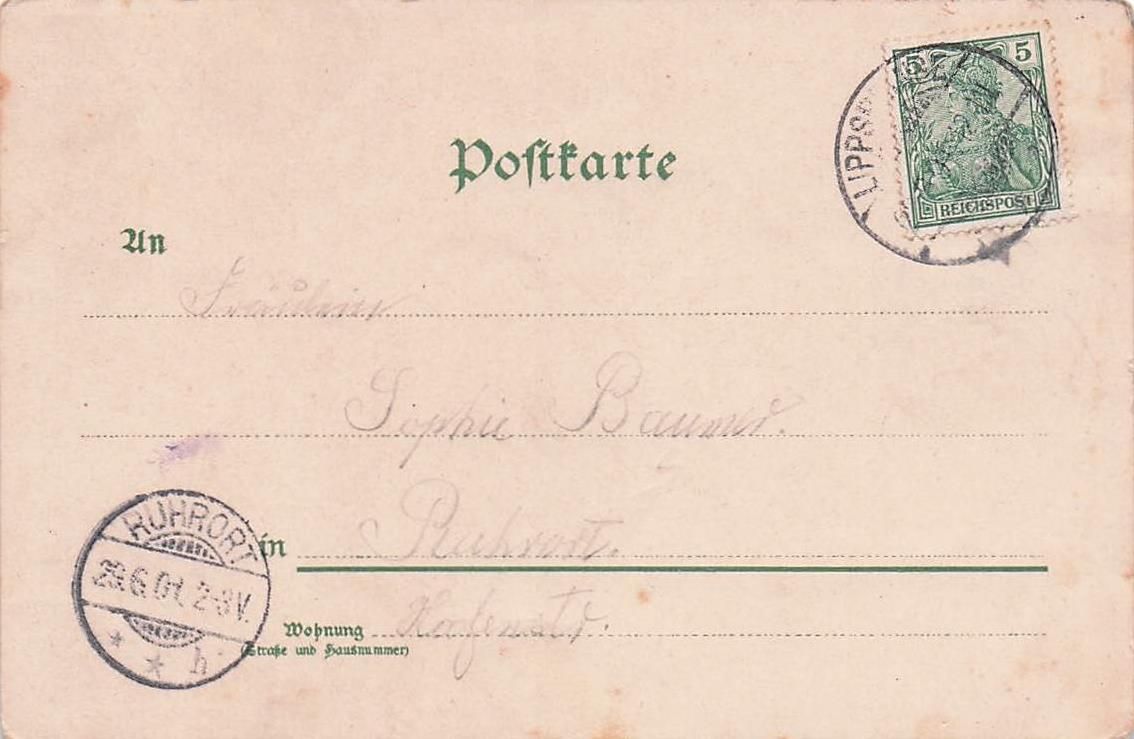 5 5
LIPPS
REICHSPOST
Postkarte
An
Fräulein
Sophie Baumer.
in Ruhrort.
RUHRORT
29.6.01. 2-3V.
* * h
Wohnung Hafenstr.
(Straße und Hausnummer)